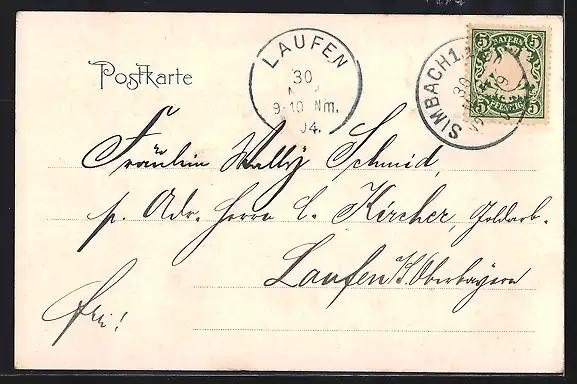 Postkarte
LAUFEN
30
9-10 Nm.
04.
SIMBACH 1
30
5 BAYERN 5
5 PFENNIG 5
Fräulein Wally Schmid,
p. Adr. Herrn C. Kircher, Goldarb.
Laufen a/S. Oberbayern
frei!